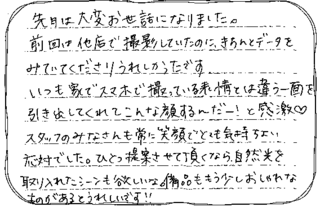 先日は大変お世話になりました。
前回は他店で撮影していたのに、きちんとデータを
みていてくださりうれしかったです。
いつも家でスマホで撮っている表情とは違う一面を
引き出してくれてこんな顔するんだー!と感激♡
スタッフのみなさんも常に笑顔でとても気持ちよい
応対でした。ひとつ提案させて頂くなら、自然光を
取り入れたシーンも欲しいな。備品ももう少しおしゃれな
ものがあるとうれしいです!!